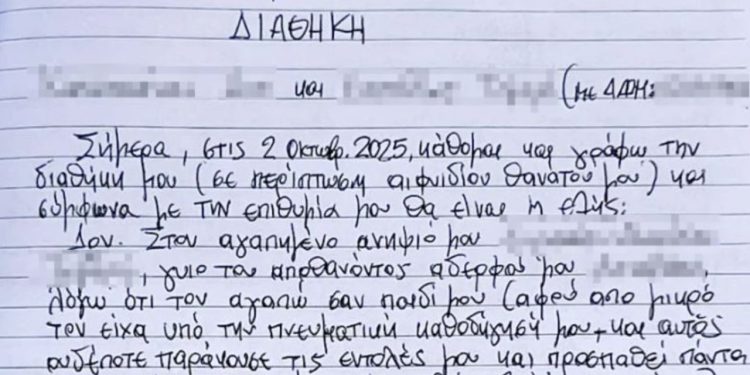 ΔΙΑΘΗΚΗ
και (με ΑΔΤΗ:
Σήμερα, στις 2 Οκτωβρ. 2025, κάθομαι και γράφω την
διαθήκη μου (σε περίπτωση αιφνιδίου θανάτου μου) και
σύμφωνα με την επιθυμία μου θα είναι η εξής:
1ον. Στον αγαπημένο ανηψιό μου
, γυιο του αποθανόντος αδερφού μου
λόγω ότι τον αγαπώ σαν παιδί μου (αφού απο μικρό
τον είχα υπό την πνευματική καθοδήγησή μου, και αυτός
ουδέποτε παράκουσε τις εντολές μου και προσπαθεί πάντα